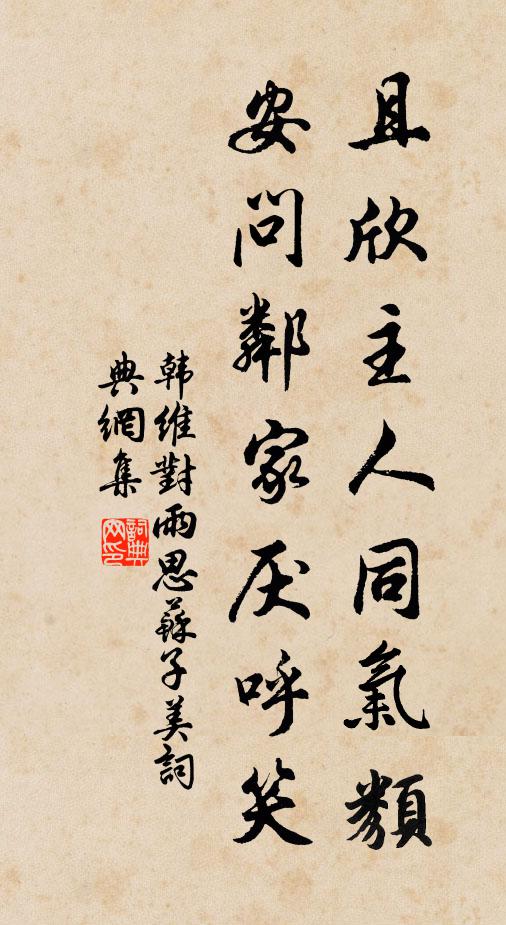 且欣主人同氣類
安問鄰家厌呼笑
韩維對雨思蘇子美詞
典網集
詞典
网印